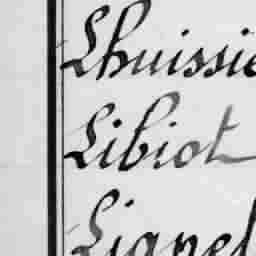 Lhuissie
Libiot
Lignel